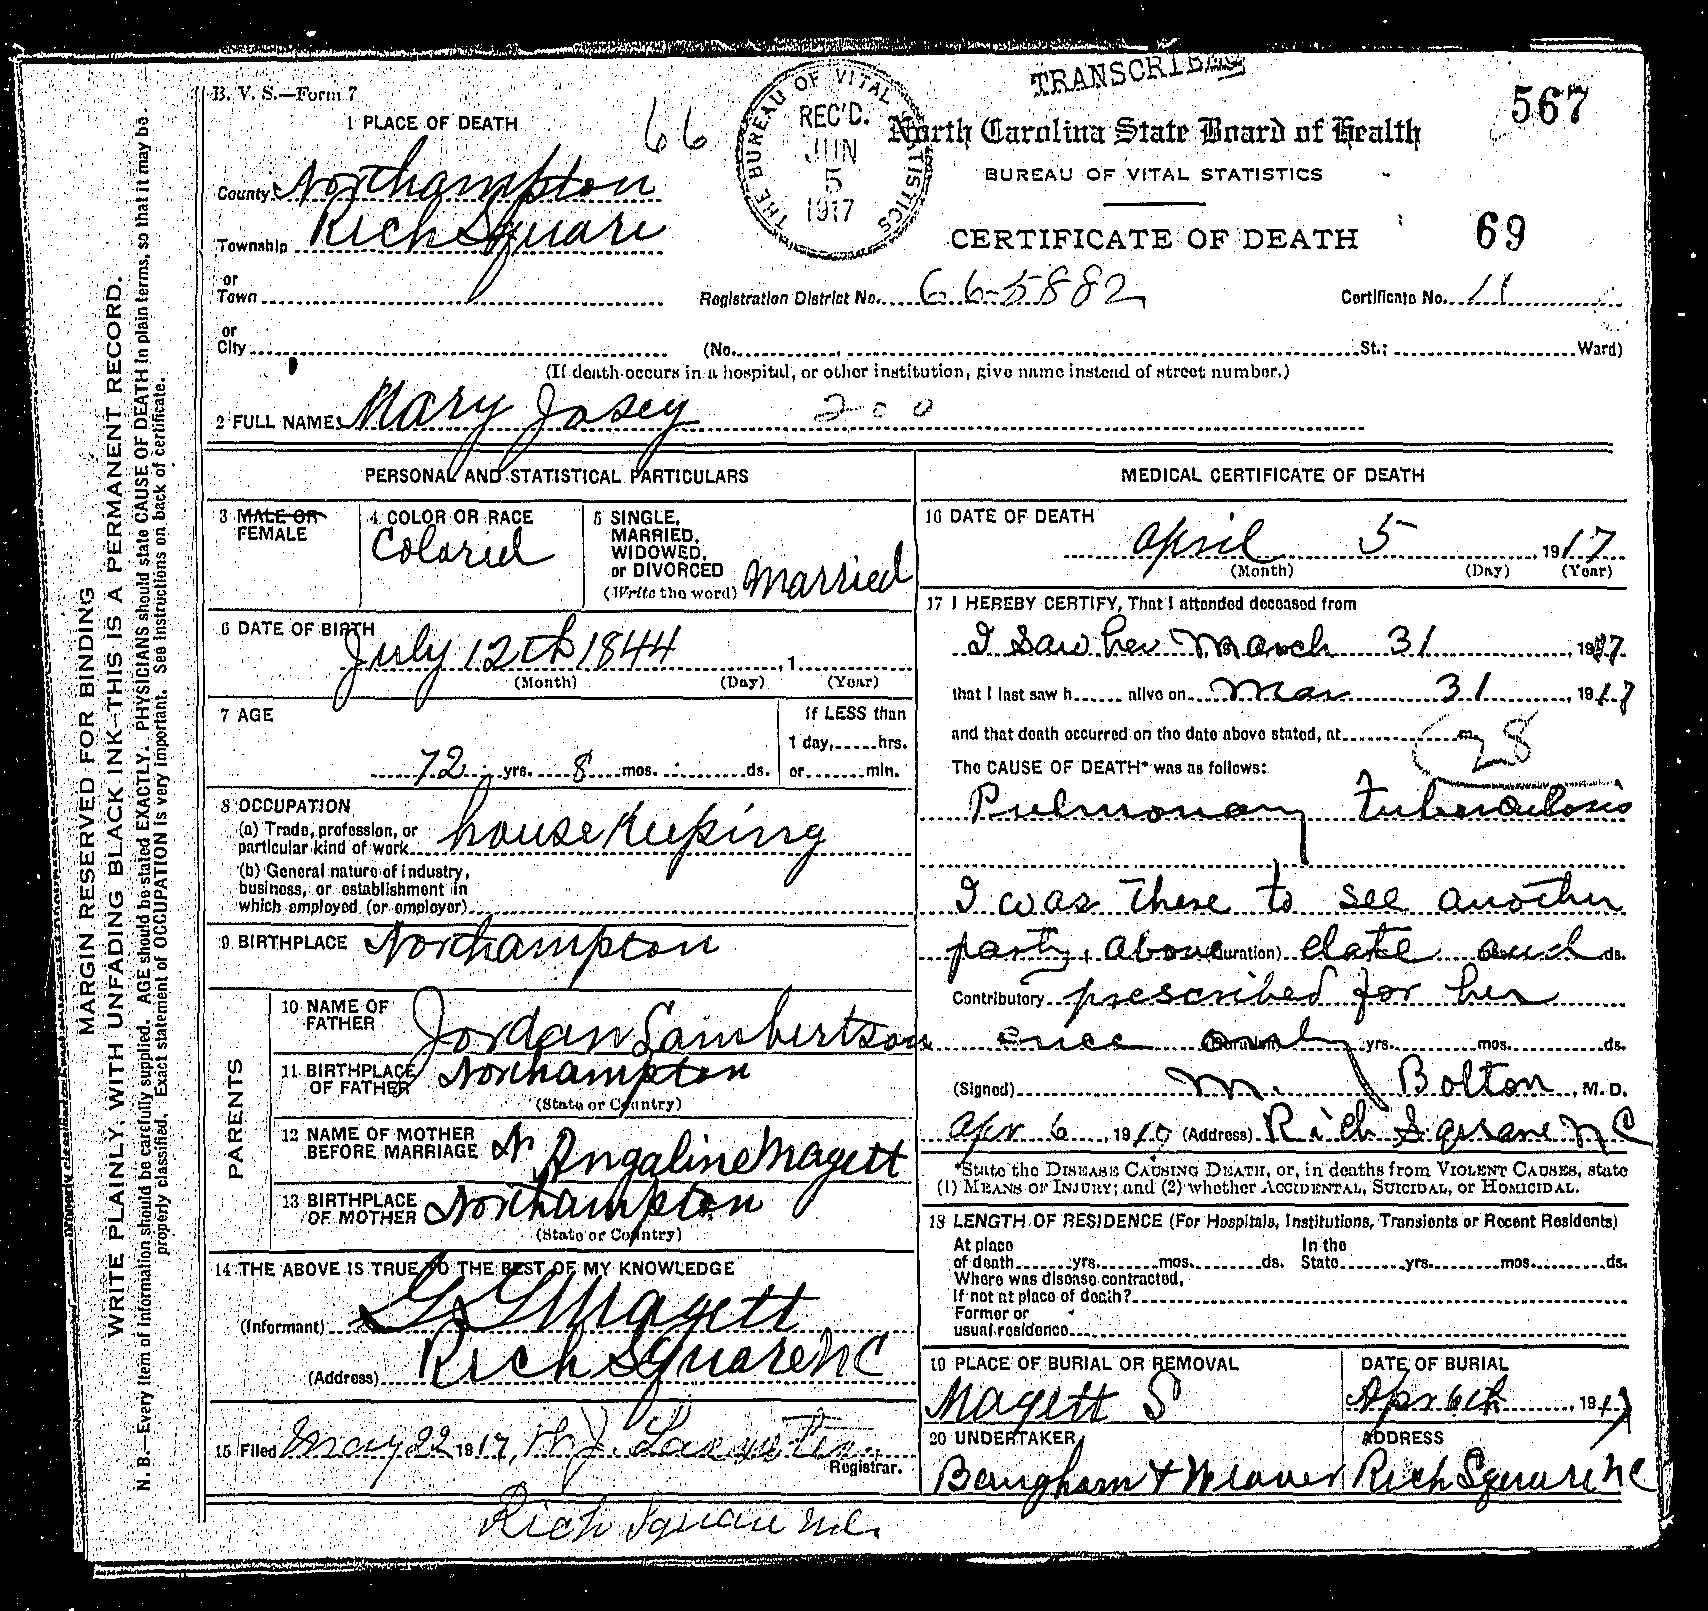 TRANSCRIBED
B. V. S.—Form 7
567
1 PLACE OF DEATH
66
THE BUREAU OF VITAL STATISTICS
REC'D.
JUN
5
1917
North Carolina State Board of Health
BUREAU OF VITAL STATISTICS
County Northampton
Township Rich Square
CERTIFICATE OF DEATH
69
or
Town
Registration District No. 66-5882
Certificate No. 11
or
City
(No. St.; Ward)
(If death occurs in a hospital, or other institution, give name instead of street number.)
2 FULL NAME Mary Josey 200
PERSONAL AND STATISTICAL PARTICULARS
3 MALE OR
FEMALE
4 COLOR OR RACE
Colored
5 SINGLE,
MARRIED,
WIDOWED,
or DIVORCED
(Write the word) Married
6 DATE OF BIRTH
July 12th 1844 , 1
(Month) (Day) (Year)
7 AGE
72 yrs. 8 mos. ds.
If LESS than
1 day, hrs.
or min.
8 OCCUPATION
(a) Trade, profession, or
particular kind of work housekeeping
(b) General nature of industry,
business, or establishment in
which employed (or employer)
9 BIRTHPLACE Northampton
PARENTS
10 NAME OF
FATHER Jordan Lambertson
11 BIRTHPLACE
OF FATHER Northampton
(State or Country)
12 NAME OF MOTHER
BEFORE MARRIAGE Angaline Magett
13 BIRTHPLACE
OF MOTHER Northampton
(State or Country)
14 THE ABOVE IS TRUE TO THE BEST OF MY KNOWLEDGE
(Informant) Magett
(Address) Rich Square NC
15 Filed May 22 1917,
Registrar.
Rich Square N.C.
MEDICAL CERTIFICATE OF DEATH
16 DATE OF DEATH
April 5 , 1917
(Month) (Day) (Year)
17 I HEREBY CERTIFY, That I attended deceased from
I saw her March 31 , 1917
that I last saw h alive on Mar 31 , 1917
and that death occurred on the date above stated, at m.
28
The CAUSE OF DEATH* was as follows:
Pulmonary tuberculosis
I was there to see another
party, above (Duration) date and ds.
Contributory prescribed for her
once only (Duration) yrs. mos. ds.
(Signed) M. Bolton , M. D.
Apr 6 , 19 (Address) Rich Square NC
*State the DISEASE CAUSING DEATH, or, in deaths from VIOLENT CAUSES, state
(1) MEANS OF INJURY; and (2) whether ACCIDENTAL, SUICIDAL, or HOMICIDAL.
18 LENGTH OF RESIDENCE (For Hospitals, Institutions, Transients or Recent Residents)
At place
of death yrs. mos. ds.
In the
State yrs. mos. ds.
Where was disease contracted,
If not at place of death?
Former or
usual residence
19 PLACE OF BURIAL OR REMOVAL
Magett S
DATE OF BURIAL
Apr 6th , 1917
20 UNDERTAKER
Baugham + Weaver
ADDRESS
Rich Square NC
MARGIN RESERVED FOR BINDING
WRITE PLAINLY, WITH UNFADING BLACK INK—THIS IS A PERMANENT RECORD.
N. B.—Every item of information should be carefully supplied. AGE should be stated EXACTLY. PHYSICIANS should state CAUSE OF DEATH in plain terms, so that it may be
properly classified. Exact statement of OCCUPATION is very important. See instructions on back of certificate.